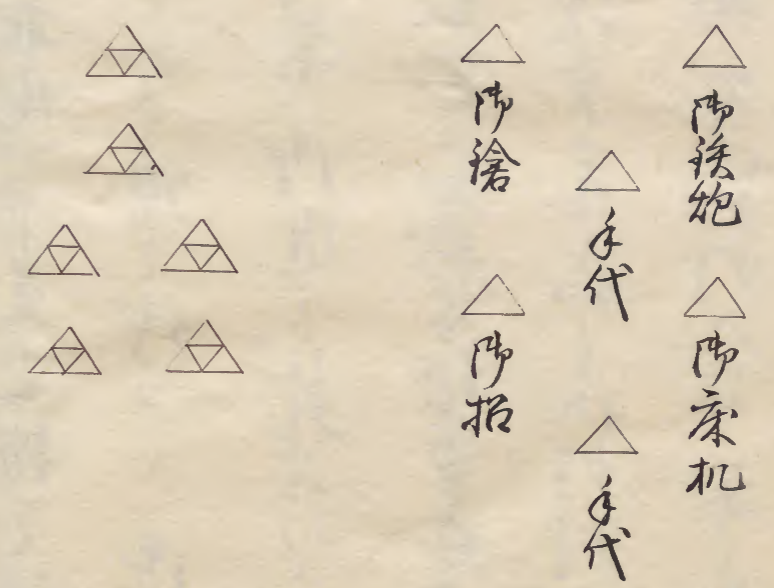 御鉄炮
御床机
手代
手代
御鎗
御招